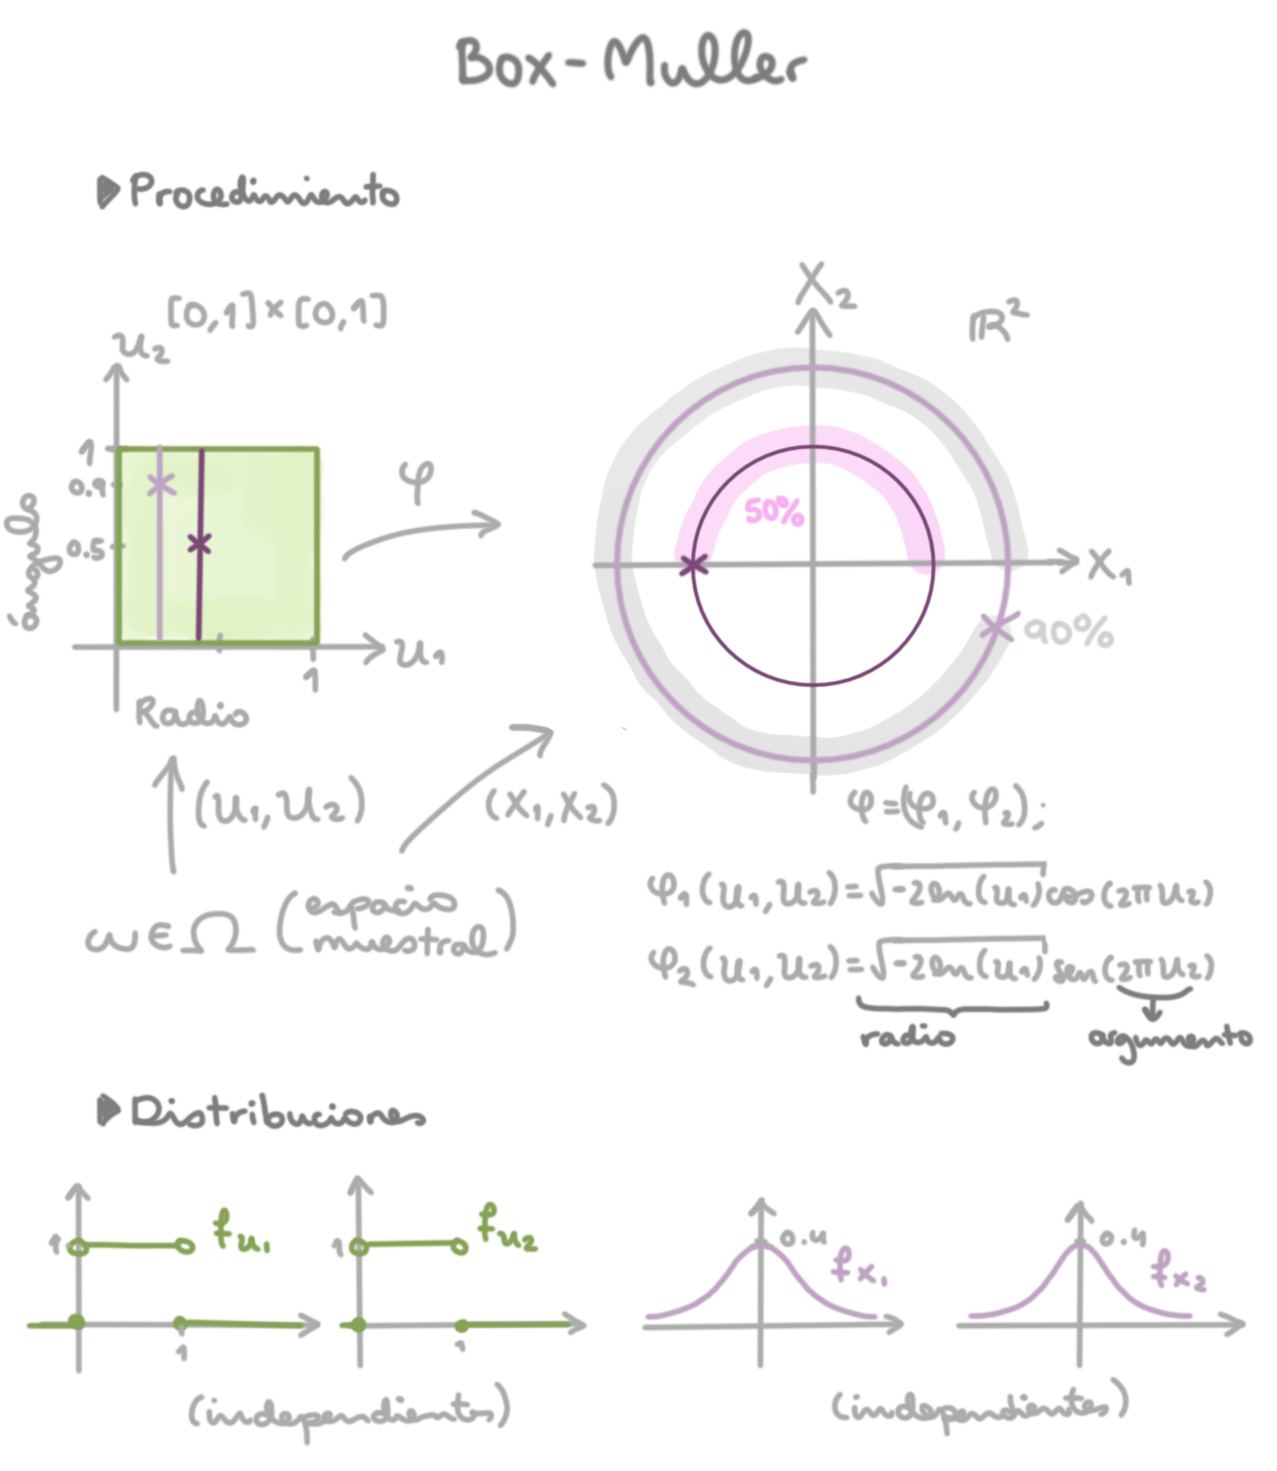 Box-Muller
Procedimiento
[0,1]×[0,1]
u₂
1
0.9
0.5
ángulo
u₁
1
Radio
φ
X₂
ℝ²
50%
X₁
90%
(U₁,U₂)
(X₁,X₂)
ω∈Ω (espacio
muestral)
φ=(φ₁,φ₂);
φ₁(u₁,u₂)=√-2ln(u₁) cos(2πu₂)
φ₂(u₁,u₂)=√-2ln(u₁) sen(2πu₂)
radio
argumento
Distribuciones
1
fᵤ₁
1
1
fᵤ₂
1
0.4
fₓ₁
0.4
fₓ₂
(independientes)
(independientes)